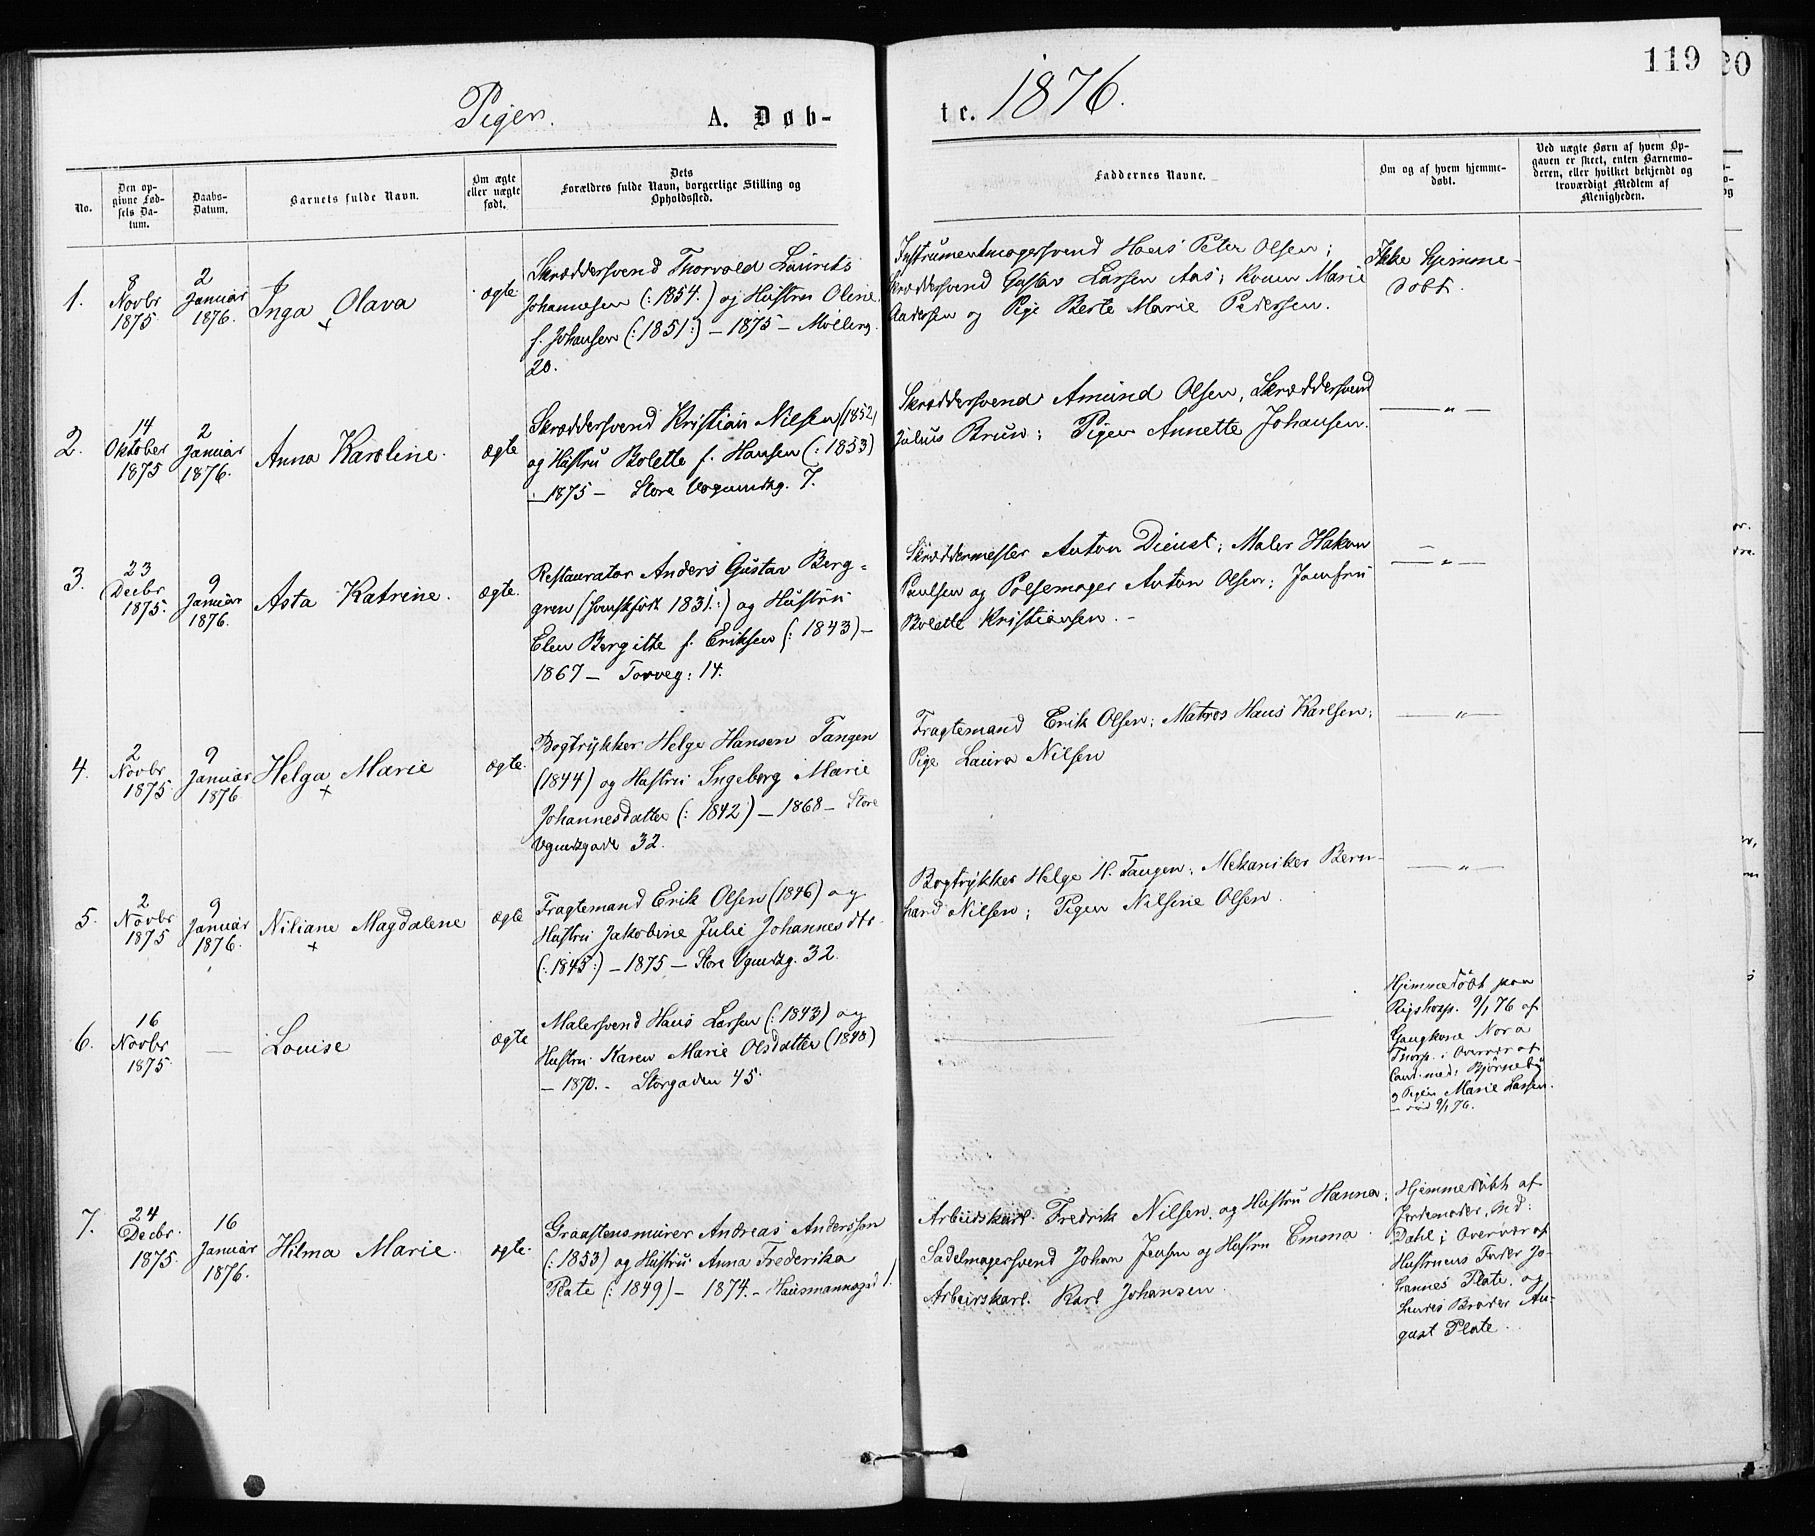 119
20
Piger.
A. Døb-
te. 1876.
No.
Den op-
givne Fød-
sels Da-
tum.
Daabs-
Datum.
Barnets fulde Navn.
Om ægte
eller uægte
født.
Dets
Forældres fulde Navn, borgerlige Stilling og
Opholdssted.
Faddernes Navne.
Om og af hvem hjemme-
døbt.
Ved uægte Børn af hvem Op-
gaven er skeet, enten Barnemo-
deren, eller hvilket bekjendt og
troværdigt Medlem af
Menigheden.
1.
8
Novbr
1875.
2
Januar
1876.
Inga Olava
ægte
Skræddersvend Thorvald Laurits
Johannesen (: 1854.) og Hustru Oline
f. Johansen (: 1851 :) – 1875 – Møllerg.
20.
Instrumentmagersvend Hans Peter Olsen;
Skræddersvend Gustav Larsen Aas; Konen Marie
Andersen og Pige Berte Marie Pedersen.
Ikke hjemme-
døbt.
2.
14
Oktober
1875
2
Januar
1876.
Anna Karoline.
ægte
Skræddersvend Kristian Nilsen (1852)
og Hustru Bolette f. Hansen (: 1853)
– 1875 – Store Vognmdsg. 7.
Skræddersvend Amund Olsen, Skræddersvend
Julius Brun; Pigen Annette Johansen.
— „ —
3.
23
Decbr
1875.
9
Januar
1876.
Asta Katrine.
ægte.
Restaurator Anders Gustav Berg-
gren (svensk født 1831 :) og Hustru
Elen Bergitte f. Eriksen (: 1843) –
1867 – Torveg: 14.
Skræddermester Anton Dienst; Maler Hakon
Paulsen og Pølsemager Anton Olsen; Jomfru
Bolette Kristiansen. –
— „ —
4.
2
Novbr
1875.
9
Januar
1876
Helga Marie
ægte.
Bogtrykker Helge Hansen Tangen
(1844) og Hustru Ingeborg Marie
Johannesdatter (: 1842) – 1868 – Store
Vgmdsgade 32.
Fragtemand Erik Olsen; Matros Hans Karlsen;
Pige Laura Nilsen
— „ —
5.
2
Novbr
1875
9
Januar
1876.
Niliane Magdalene
ægte
Fragtemand Erik Olsen (1846) og
Hustru Jakobine Julie Johannesdtr.
(: 1845 :) – 1875 – Store Vgmdsg. 32.
Bogtrykker Helge H. Tangen; Mekaniker Bern-
hard Nilsen; Pigen Nilsine Olsen.
— „ —
6.
16
Novbr
1875.
—
Louise
ægte
Malersvend Hans Larsen (: 1843) og
Hustru Karen Marie Olsdatter (1848)
– 1870. – Storgaden 45.
—
Hjemmedøbt paa
Rigshosp. 9/1 76 af
Gangkone Nora
Thorp. i Overvær af
Cand. med: Bjørneby
og Pigen Marie Larsen.
– død 9/1 76.
7.
24
Decbr.
1875.
16
Januar
1876.
Hilma Marie.
ægte.
Graastensmurer Andreas Andersson
(: 1853) og Hustru Anna Frederika
Plate (: 1849) – 1874. – Hausmannsgd 1.
Arbeidskarl. Fredrik Nilsen. og Hustru Hanna;
Sadelmagersvend Johan Jensen og Hustru Emma.
Arbeidskarl. Karl Johansen.
Hjemmedøbt af
Jordemoder, Md:
Dahl i Overvær af
Hustruens Fader Jo-
hannes Plate, og
hendes Broder Au-
gust Plate.